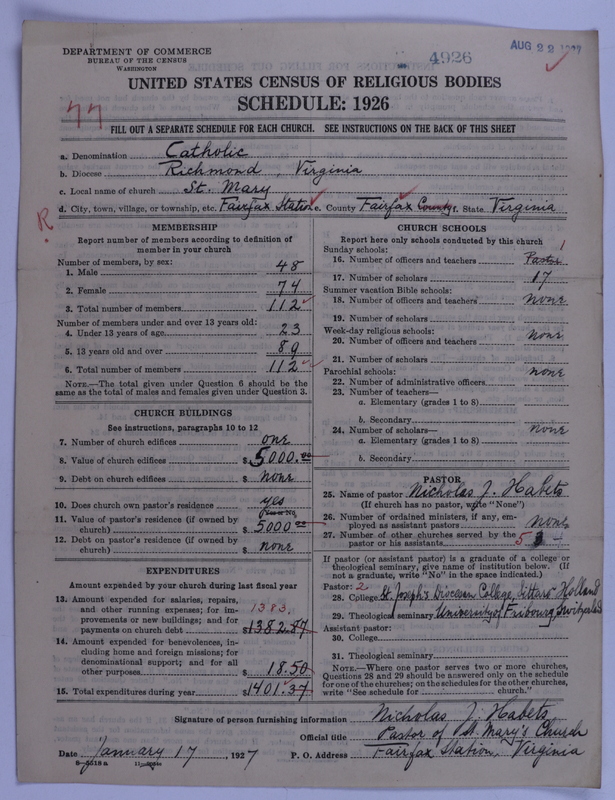 DEPARTMENT OF COMMERCE
BUREAU OF THE CENSUS
WASHINGTON
4926
AUG 22 1927
UNITED STATES CENSUS OF RELIGIOUS BODIES
SCHEDULE: 1926
77
FILL OUT A SEPARATE SCHEDULE FOR EACH CHURCH. SEE INSTRUCTIONS ON THE BACK OF THIS SHEET
a. Denomination Catholic
b. Diocese Richmond, Virginia
c. Local name of church St. Mary
d. City, town, village, or township, etc. Fairfax Station e. County Fairfax County f. State Virginia
R
MEMBERSHIP
Report number of members according to definition of member in your church
Number of members, by sex:
1. Male 48
2. Female 74
3. Total number of members 112
Number of members under and over 13 years old:
4. Under 13 years of age 23
5. 13 years old and over 89
6. Total number of members 112
NOTE.—The total given under Question 6 should be the
same as the total of males and females given under Question 3.
CHURCH BUILDINGS
See instructions, paragraphs 10 to 12
7. Number of church edifices one
8. Value of church edifices $5000.00
9. Debt on church edifices $ none
10. Does church own pastor's residence yes
(Yes or No)
11. Value of pastor's residence (if owned by
church) $5000.00
12. Debt on pastor's residence (if owned by
church) $ none
EXPENDITURES
Amount expended by your church during last fiscal year
13. Amount expended for salaries, repairs,
and other running expenses; for im-
provements or new buildings; and for
payments on church debt 1383. $1382.87
14. Amount expended for benevolences, in-
cluding home and foreign missions; for
denominational support; and for all
other purposes $ 18.50
15. Total expenditures during year $1401.37
CHURCH SCHOOLS
Report here only schools conducted by this church
Sunday schools:
16. Number of officers and teachers Pastor 1
17. Number of scholars 17
Summer vacation Bible schools:
18. Number of officers and teachers none
19. Number of scholars
Week-day religious schools:
20. Number of officers and teachers none
21. Number of scholars
Parochial schools: none
22. Number of administrative officers
23. Number of teachers—
a. Elementary (grades 1 to 8)
b. Secondary
24. Number of scholars— none
a. Elementary (grades 1 to 8)
b. Secondary
PASTOR
25. Name of pastor Nicholas J. Habets
(If church has no pastor, write "None")
26. Number of ordained ministers, if any, em-
ployed as assistant pastors none
27. Number of other churches served by the
pastor or his assistants 5
If pastor (or assistant pastor) is a graduate of a college or
theological seminary, give name of institution below. (If
not a graduate, write "No" in the space indicated.)
Pastor: 2
28. College St. Joseph's Diocesan College, Sittard Holland
29. Theological seminary University of Fribourg, Switzerland
Assistant pastor:
30. College
31. Theological seminary
NOTE.—Where one pastor serves two or more churches,
Questions 28 and 29 should be answered only on the schedule
for one of the churches; on the schedules for the other churches,
write "See schedule for church."
Signature of person furnishing information Nicholas J. Habets
Official title Pastor of St. Mary's Church
Date January 17, 1927 P. O. Address Fairfax Station, Virginia
8—5518a